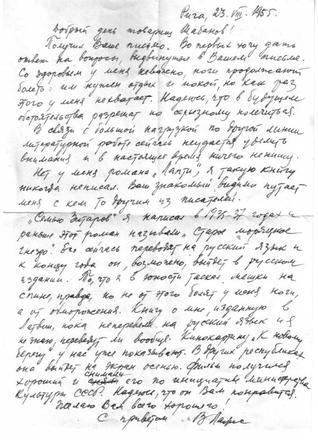 Рига, 23.VIII.1955.
Добрый день товарищ Шабанов!
Получил Ваше письмо. Во первых хочу дать
ответ на вопросы, выдвинутые в Вашем письме.
Со здоровьем у меня неважно, ноги продолжают
болеть: им нужен отдых и покой, но как раз
этого у меня нехватает. Надеюсь, что в будущем
обстоятельства разрешат по серьезному полечиться.
В связи с большой нагрузкой по другой линии
литературной работе сейчас неудается уделить
внимания и в настоящее время ничего не пишу.
Нет у меня романа „Лапти", я такую книгу
никогда не писал. Ваш знакомый видимо путает
меня с кем то другим из писателей.
„Семью Зитаров" я написал в 1935-37 годах и
раньше этот роман назывался „Старое моряцкое
гнездо". Его сейчас переводят на русский язык и
к концу года он, возможно, выйдет в русском
издании. То, что я в юности таскал мешки на
спине, правда, но не от этого болят у меня ноги,
а от обморожения. Книгу о мне, изданную в
Латвии, пока не перевели на русский язык и я
не знаю, переведут ли вообще. Кинокартину „К новому
берегу" у нас уже показывают. В других республиках
она выйдет на экран осенью. Фильм получился
хороший и снимали его по инициативе Министерства
Культуры СССР. Надеюсь, что он Вам понравится.
Желаю Вам всего хорошего,
С приветом В Лацис